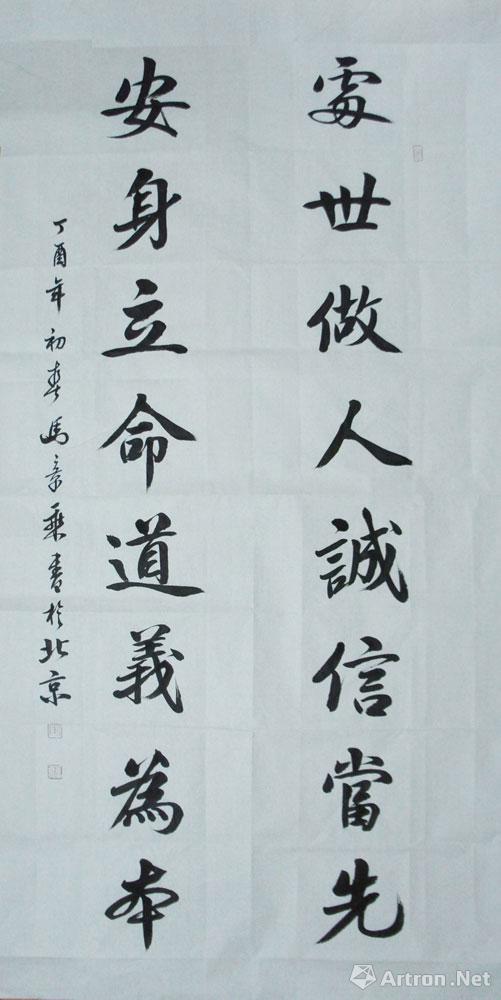 處世做人誠信當先
安身立命道義為本
丁酉年初春馬章乘書於北京
Artron.Net